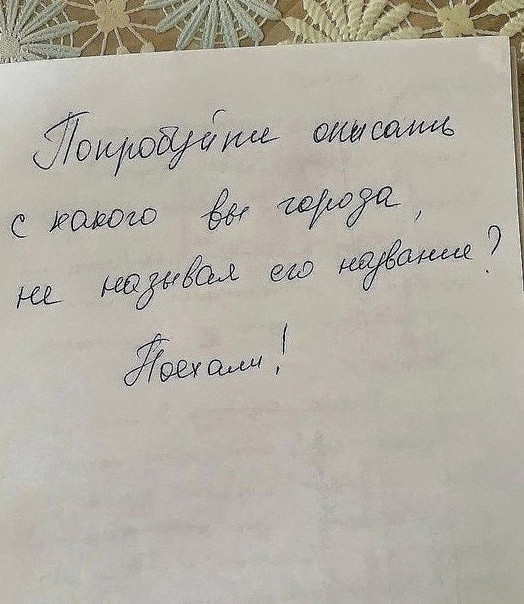 Попробуйте описать
с какого вы города,
не называя его название?
Поехали!